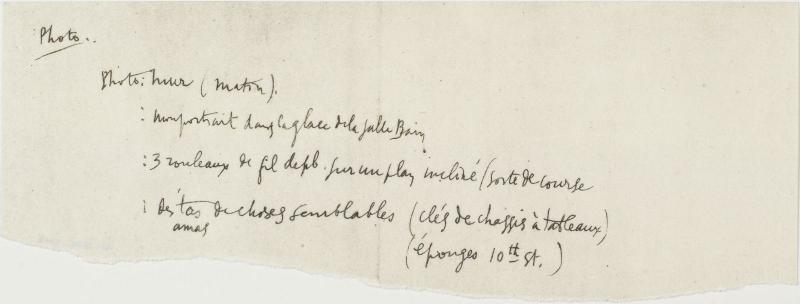 Photo..
Photo: mur (matin).
: mon portrait dans la glace de la salle Bain
: 3 rouleaux de fil de pb. sur un plan incliné (sorte de course
: des tas de choses semblables (clés de chassis à tableaux)
amas
(éponges 10th St.)